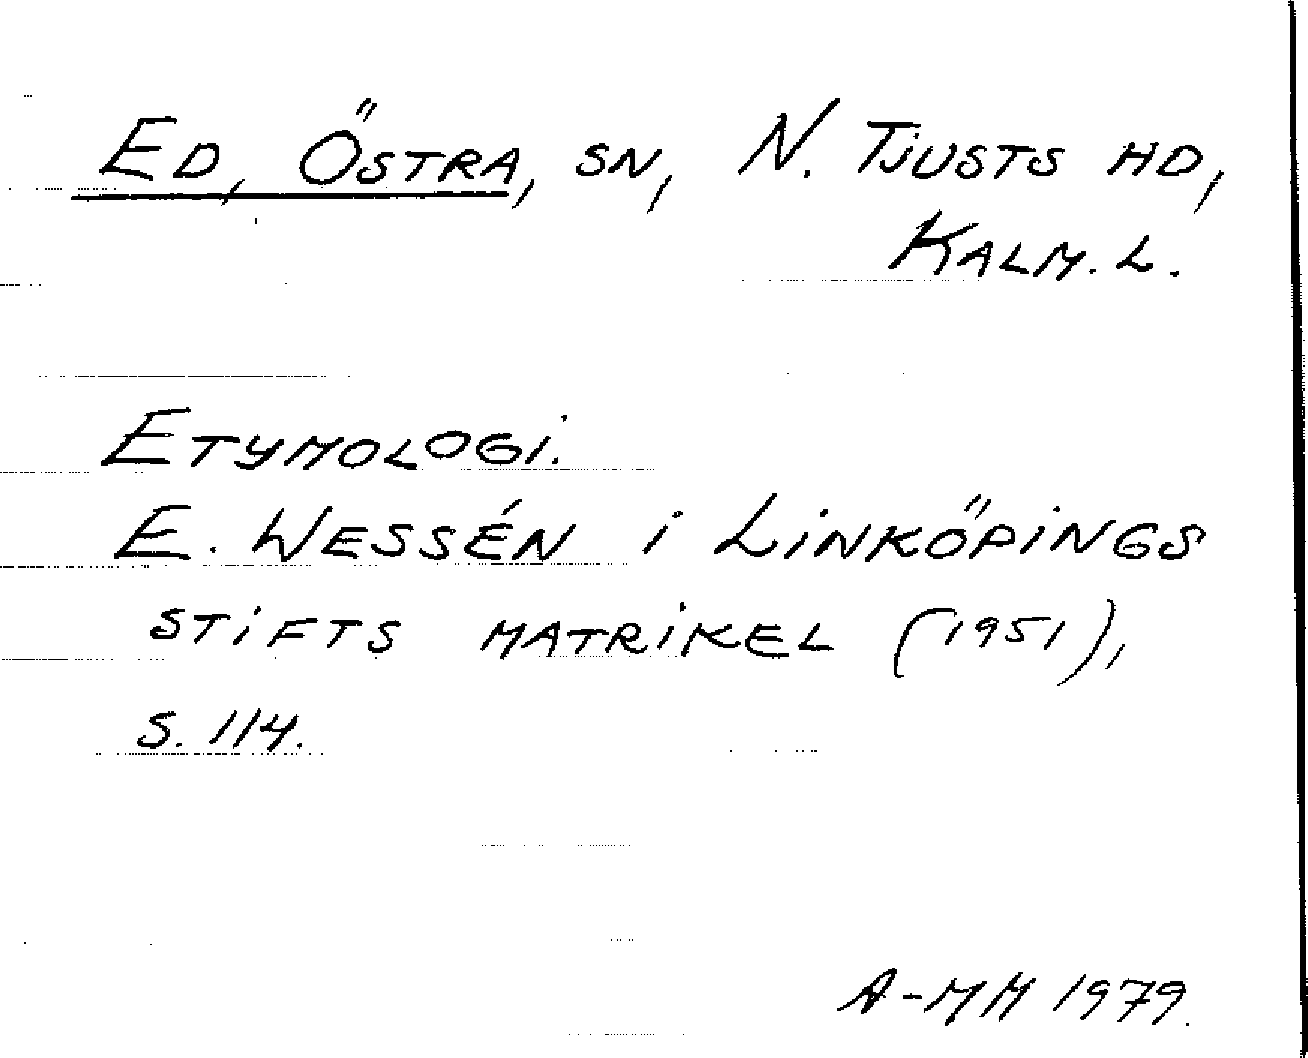 Ed, Östra, sn, N. Tjusts hd,
Kalm. l.
Etymologi.
E. Wessén i Linköpings
stifts matrikel (1951),
s. 114.
A-MM 1979.